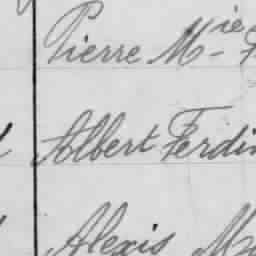 Pierre M^ie
Albert Ferdin
Alexis Ma